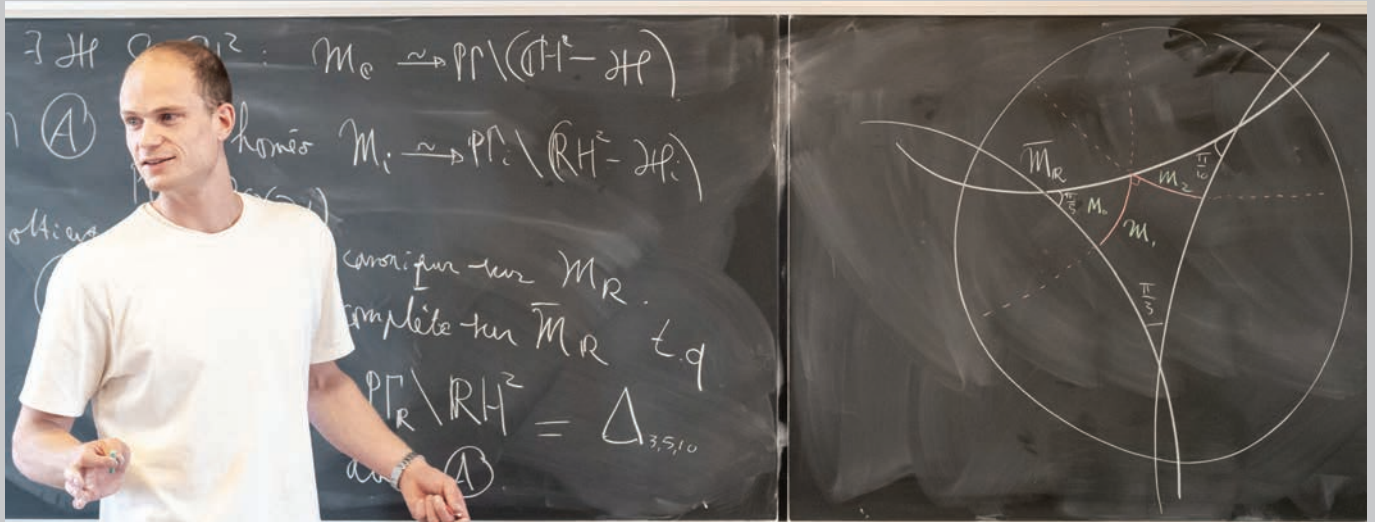 ∃ ℋ ⊂ ℂH² : M_ℂ ⥲ PΓ\(ℂH² − ℋ)
Ⓐ homéo M_i ⥲ PΓ_i\(ℝH² − ℋ_i)
canonique sur M_ℝ.
complète sur M̄_ℝ t.q
PΓ_ℝ\ℝH² = Δ_{3,5,10}
Ⓐ
M̄_ℝ
π/10
M_2
π/5
M_0
M_1
π/3